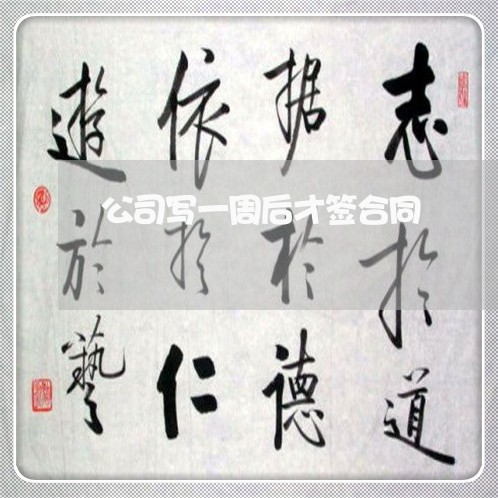 志於道
据於德
依於仁
遊於藝
公司写一周后才签合同